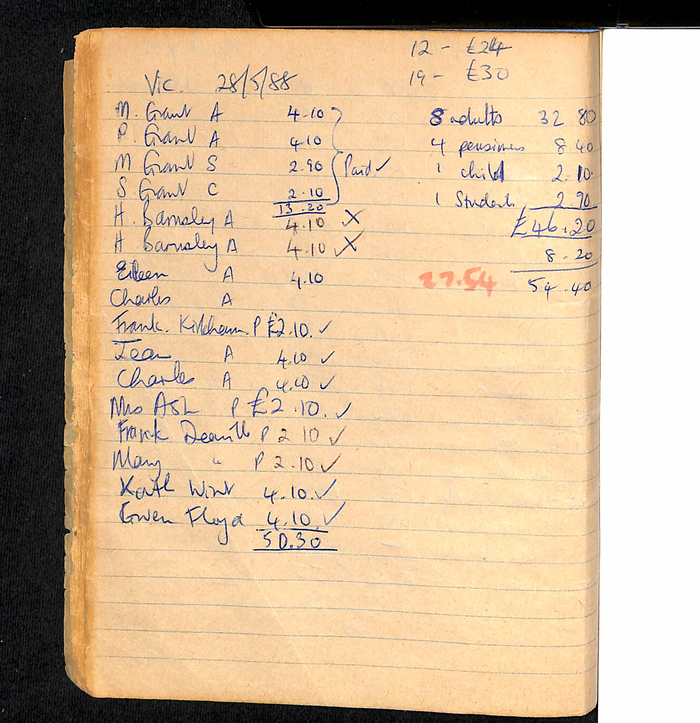 12 - £24
19 - £30
Vic. 28/5/88
M. Grant A 4.10
P. Grant A 4.10
M Grant S 2.90 Paid ✓
S Grant C 2.10
13.20
H. Barnsley A 4.10 X
H. Barnsley A 4.10 X
Eileen A 4.10
Charles A
Frank. Kirkham. P £2.10. ✓
Jean A 4.10 ✓
Charles A 4.10 ✓
Mrs Ash P £2.10. ✓
Frank Deaville P 2 10 ✓
Mary " P 2.10 ✓
Kath Wint 4.10. ✓
Gwen Floyd 4.10. ✓
50.30
8 adults 32 80
4 pensioners 8 40
1 child 2.10
1 Student 2.90
£46.20
8.20
54.40
27.54